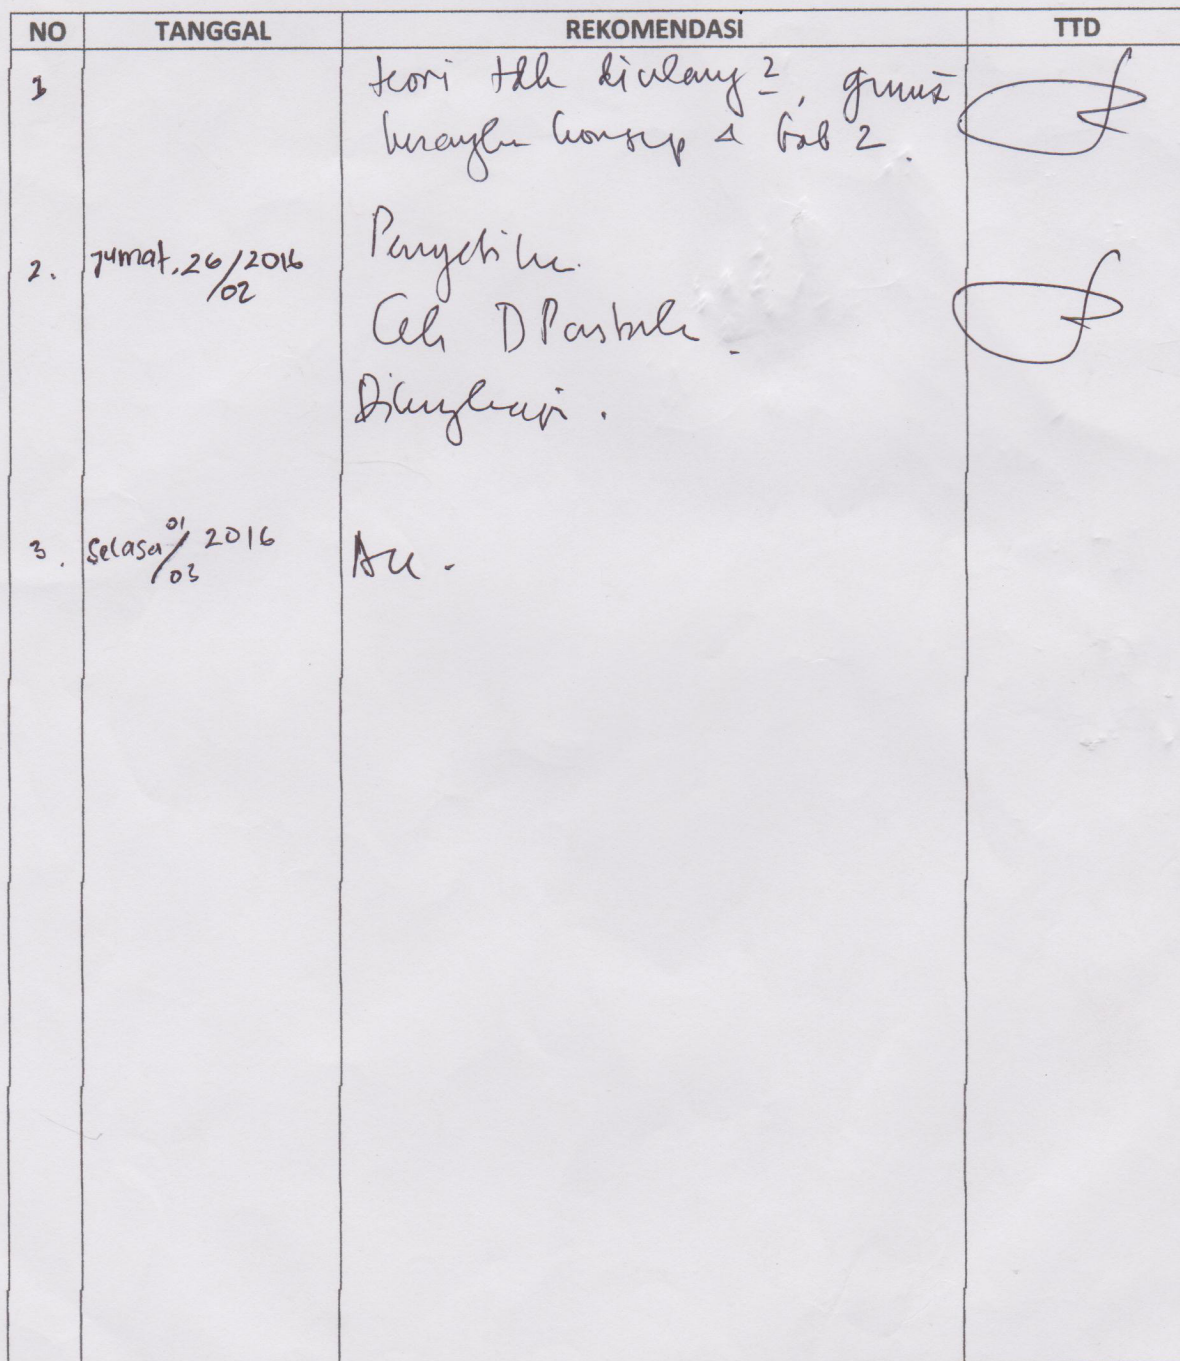 NO TANGGAL REKOMENDASI TTD
1 teori tdk diulang 2,
konsep bab 2.
2. Jumat, 26/02 2016 Pengetikan.
Cek D Pustak
Dilengkapi.
3. Selasa 01/03 2016 Acc.